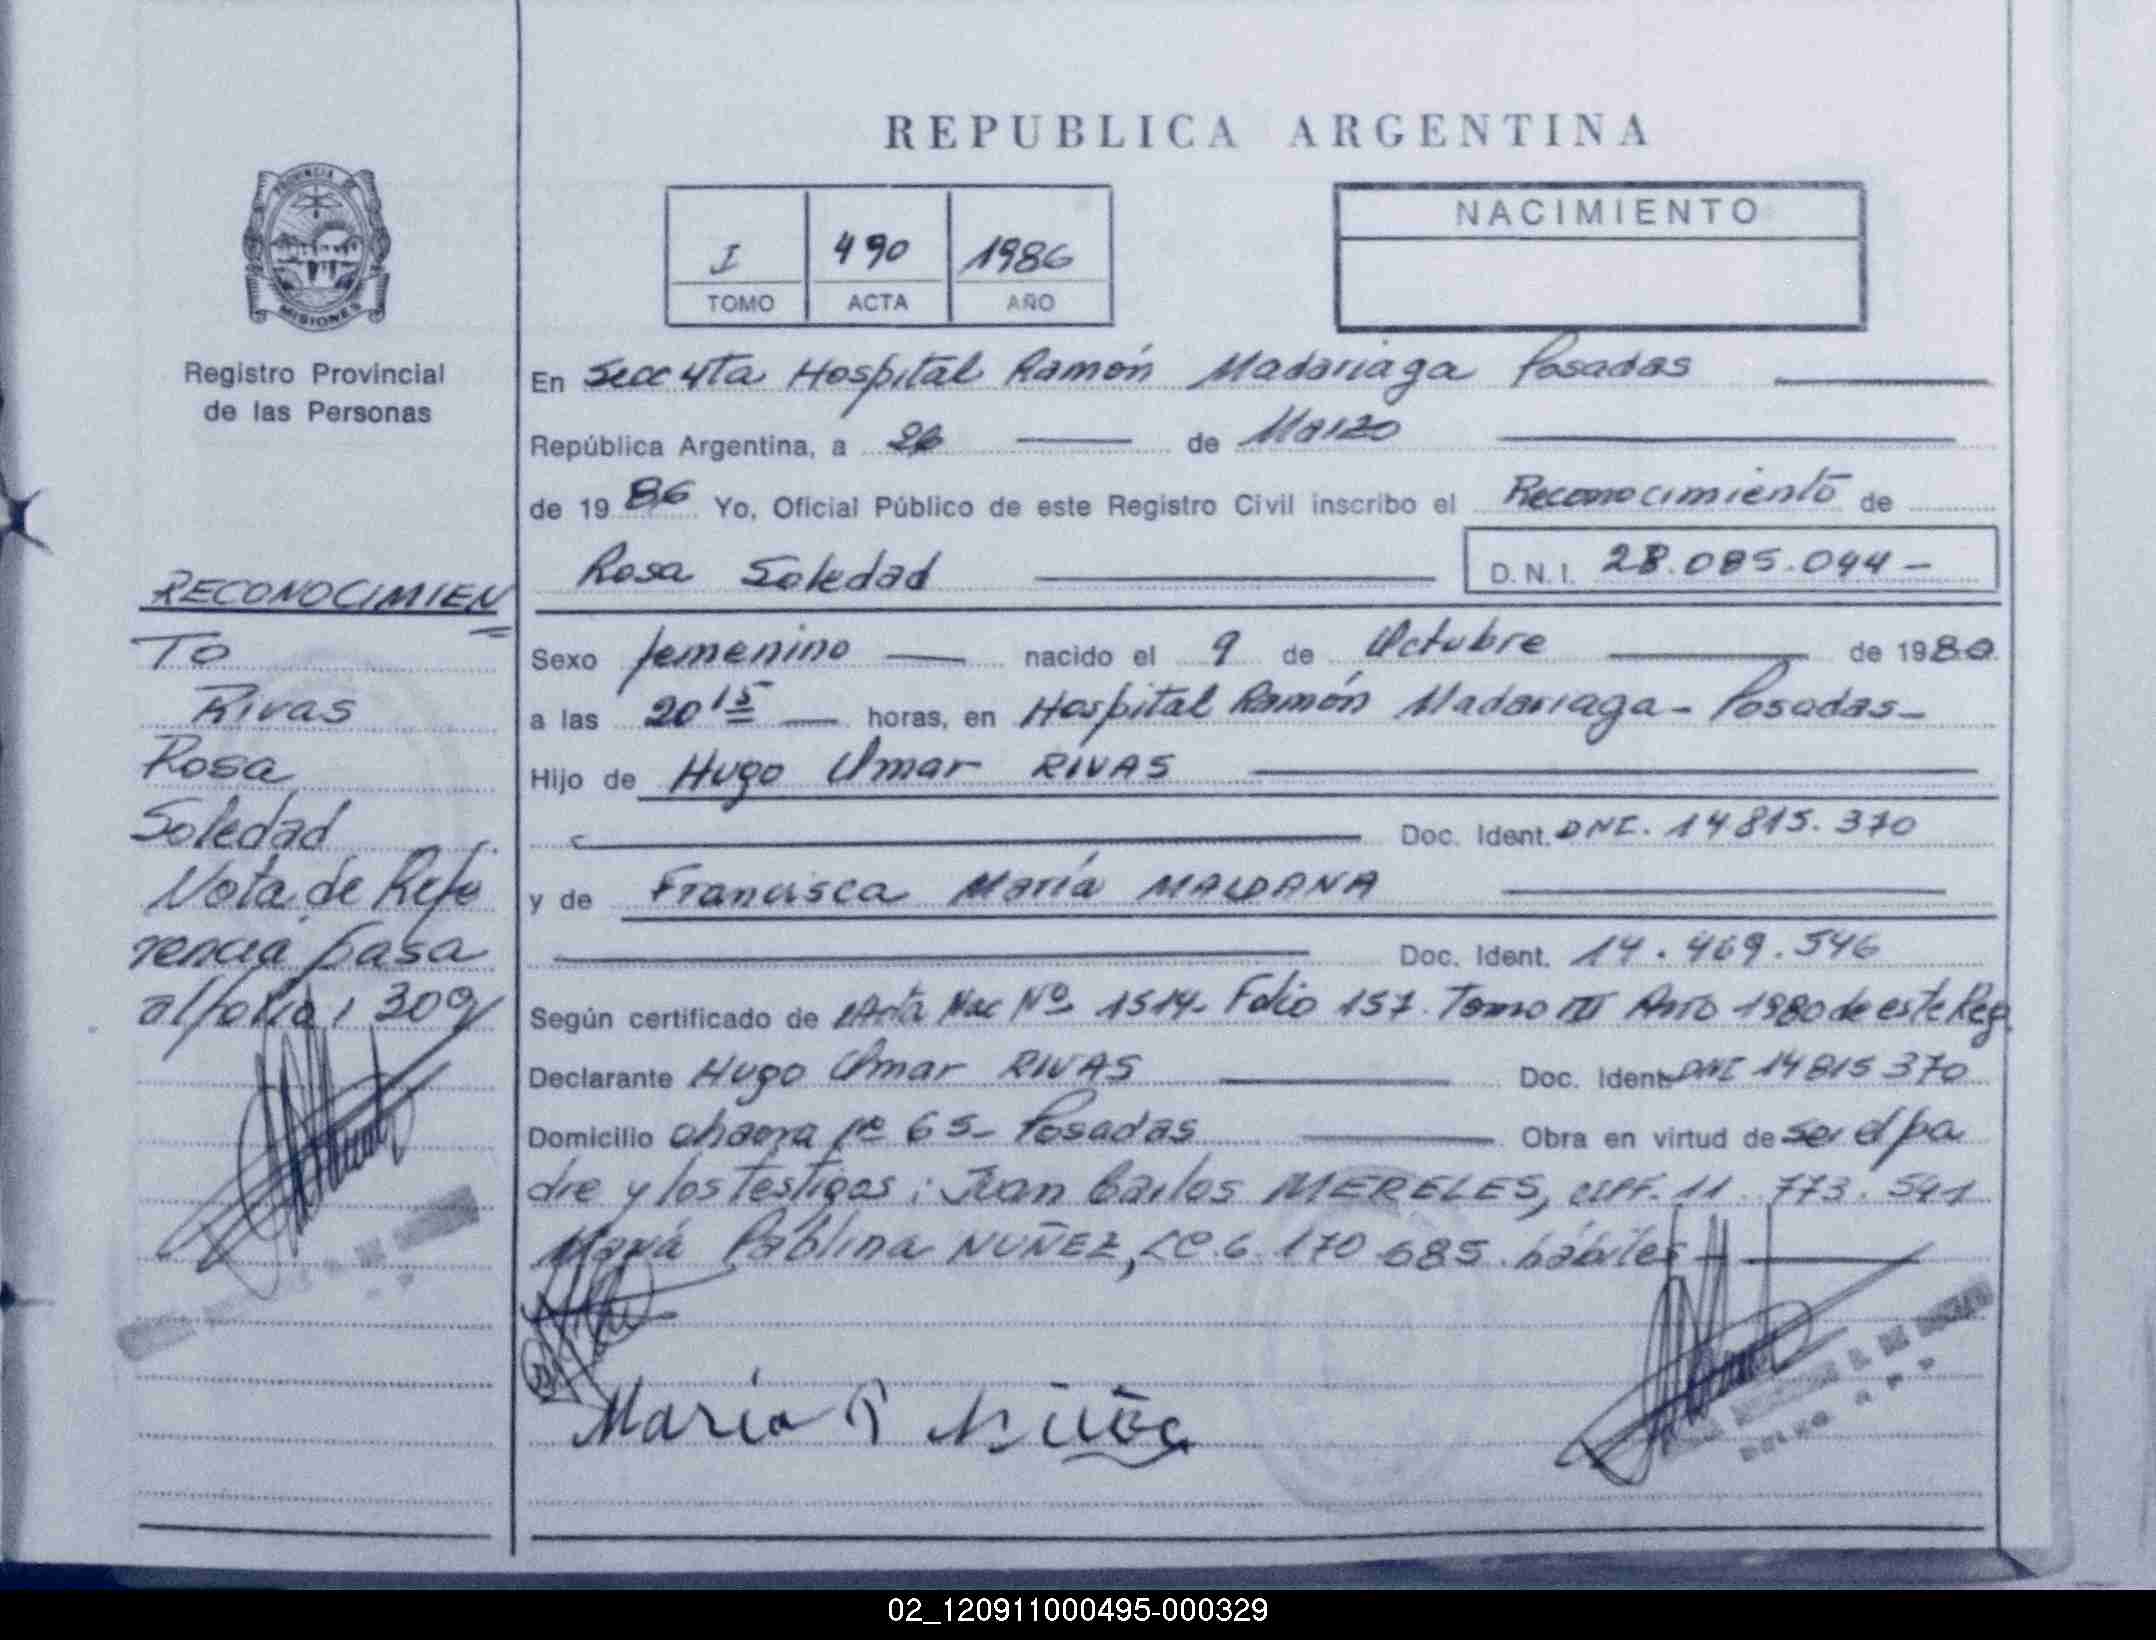 REPUBLICA ARGENTINA
PROVINCIA DE
MISIONES
Registro Provincial
de las Personas
I 490 1986
TOMO ACTA AÑO
NACIMIENTO
En Secc 4ta Hospital Ramón Madariaga Posadas
República Argentina, a 26 de Marzo
de 1986 Yo, Oficial Público de este Registro Civil inscribo el Reconocimiento de
Rosa Soledad D.N.I. 28.085.044-
Sexo femenino nacido el 9 de Octubre de 1980
a las 20 15 horas, en Hospital Ramón Madariaga - Posadas -
Hijo de Hugo Omar RIVAS
Doc. Ident. DNI. 14815.370
y de Francisca María MALDANA
Doc. Ident. 14.469.546
Según certificado de Acta Nac Nº 1514- Folio 157 Tomo III Año 1980 de este Reg
Declarante Hugo Omar RIVAS Doc. Ident. DNI 14815370
Domicilio chacra Nº 65- Posadas Obra en virtud de ser el pa
dre y los testigos: Juan Carlos MERELES, 11.773.541
María Pablina NUÑEZ, LC.6.170.685. hábiles -
María P Núñez
RECONOCIMIEN
TO
Rivas
Rosa
Soledad
Nota de Refe
rencia pasa
al folio, 309
02_120911000495-000329